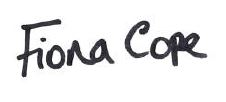 Fiona Cope